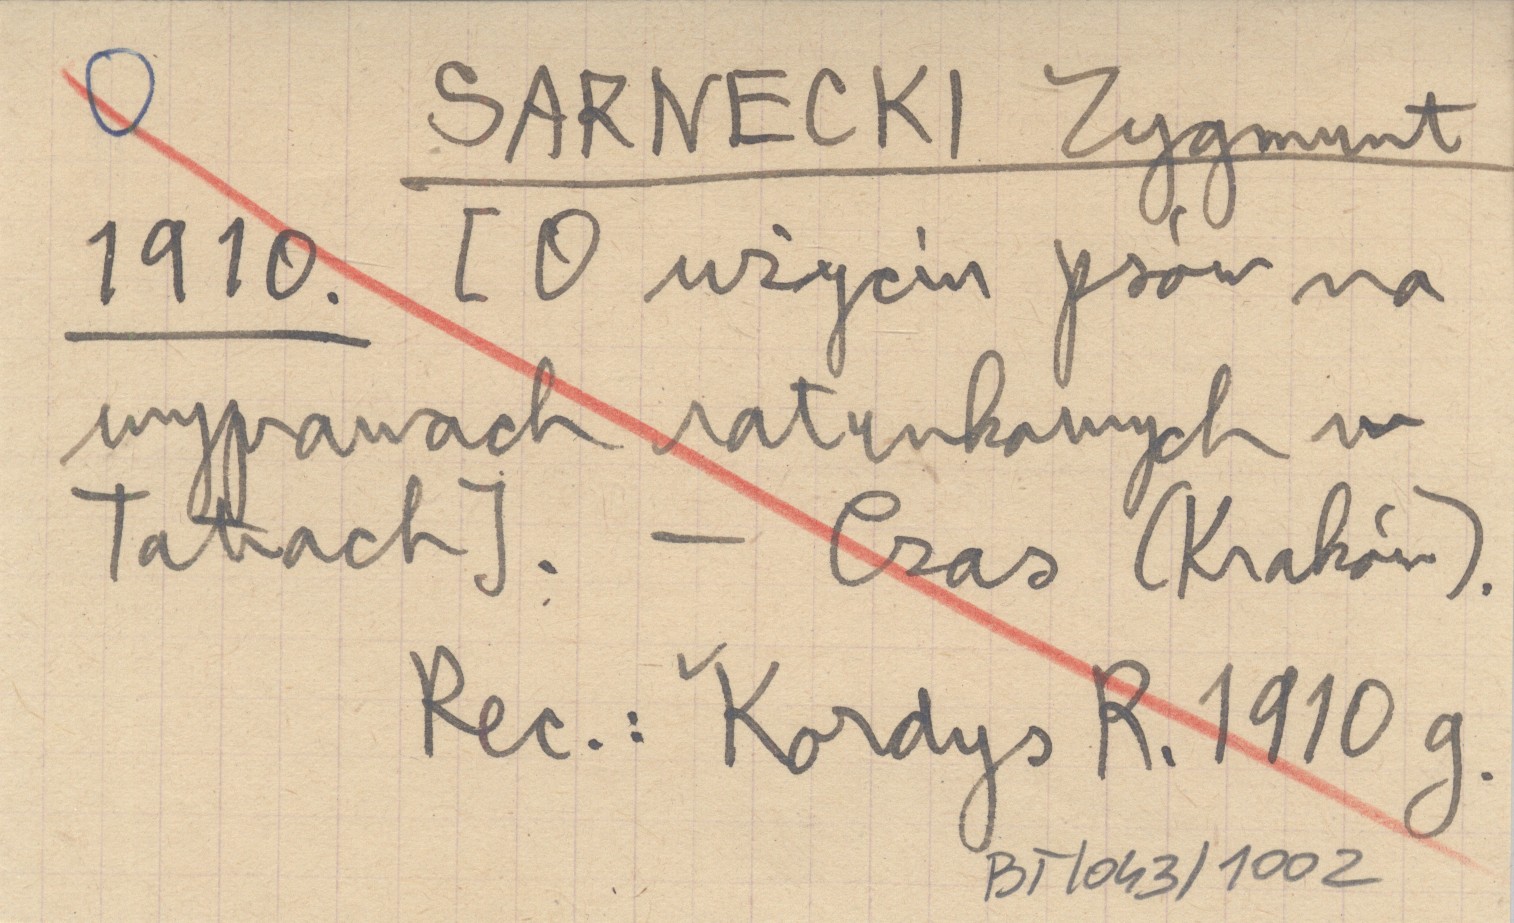 SARNECKI Zygmunt
1910. [O użyciu psów na
wyprawach ratunkowych w
Tatrach]. — Czas (Kraków).
Rec.: Kordys R. 1910 g.
BT/043/1002